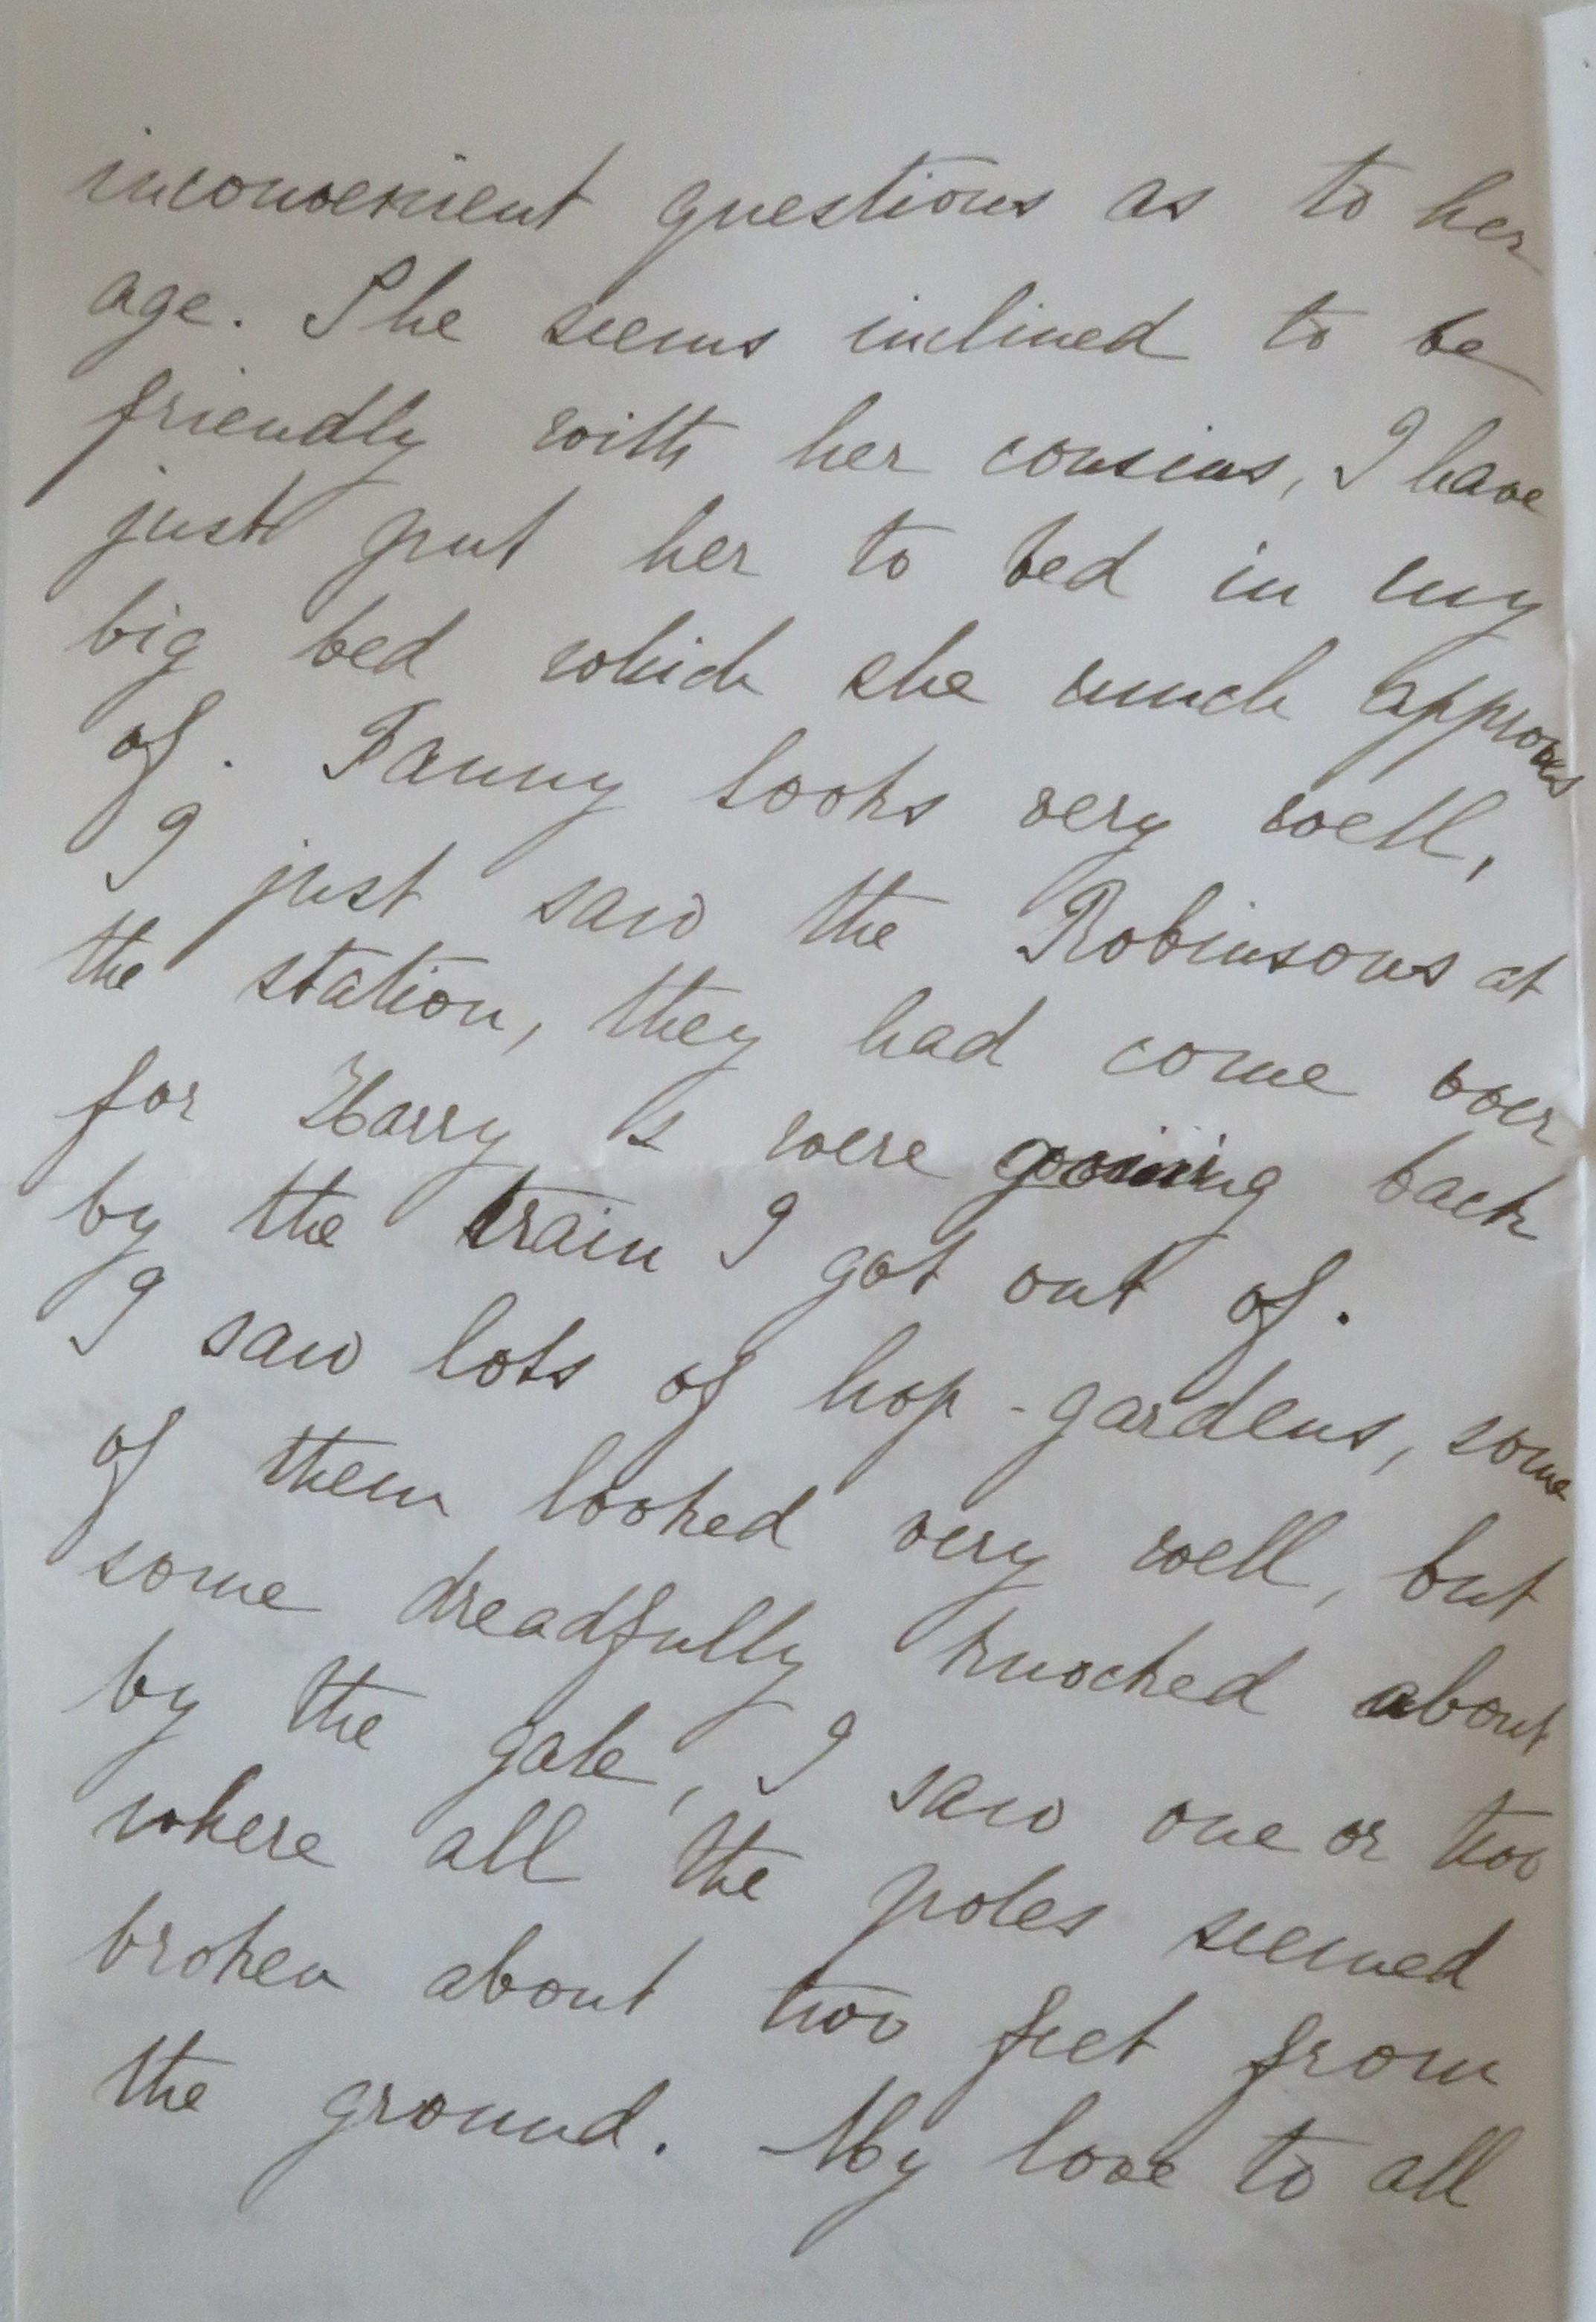 inconvenient questions as to her
age. She seems inclined to be
friendly with her cousins, I have
just put her to bed in my
big bed which she much approves
of. Fanny looks very well,
I just saw the Robinsons at
the station, they had come over
for Harry & were going back
by the train I got out of.
I saw lots of hop-gardens, some
of them looked very well, but
some dreadfully knocked about
by the gale, I saw one or two
where all the poles seemed
broken about two feet from
the ground. My love to all